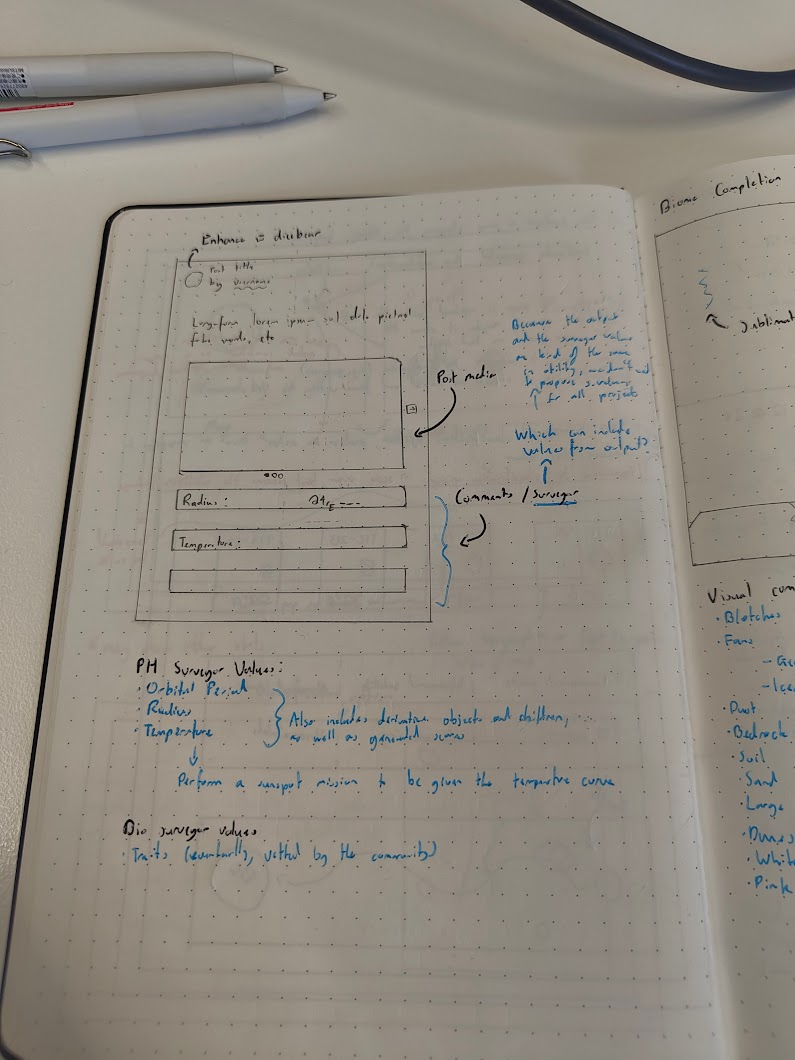 Enhance = disclaimer
Post title
by username
Long-form lorem ipsum
etc
Post media
Radius:
Temperature:
Comments / Surveyor
Because the output
and the surveyor values
are kind of the same
in utility,
to propose
for all projects
Which can include
values from output?
PH Surveyor Values:
· Orbital Period
· Radius
· Temperature
Also includes derivative objects and children,
as well as generated scores
Perform a sunspot mission to be given the temperature curve
Bio surveyor values
· Traits (eventually, vetted by the community)
Biome Completion
Visual
· Blotches
· Fans
· Dust
· Bedrock
· Soil
· Sand
· Large
· Dunes
· White
· Pink